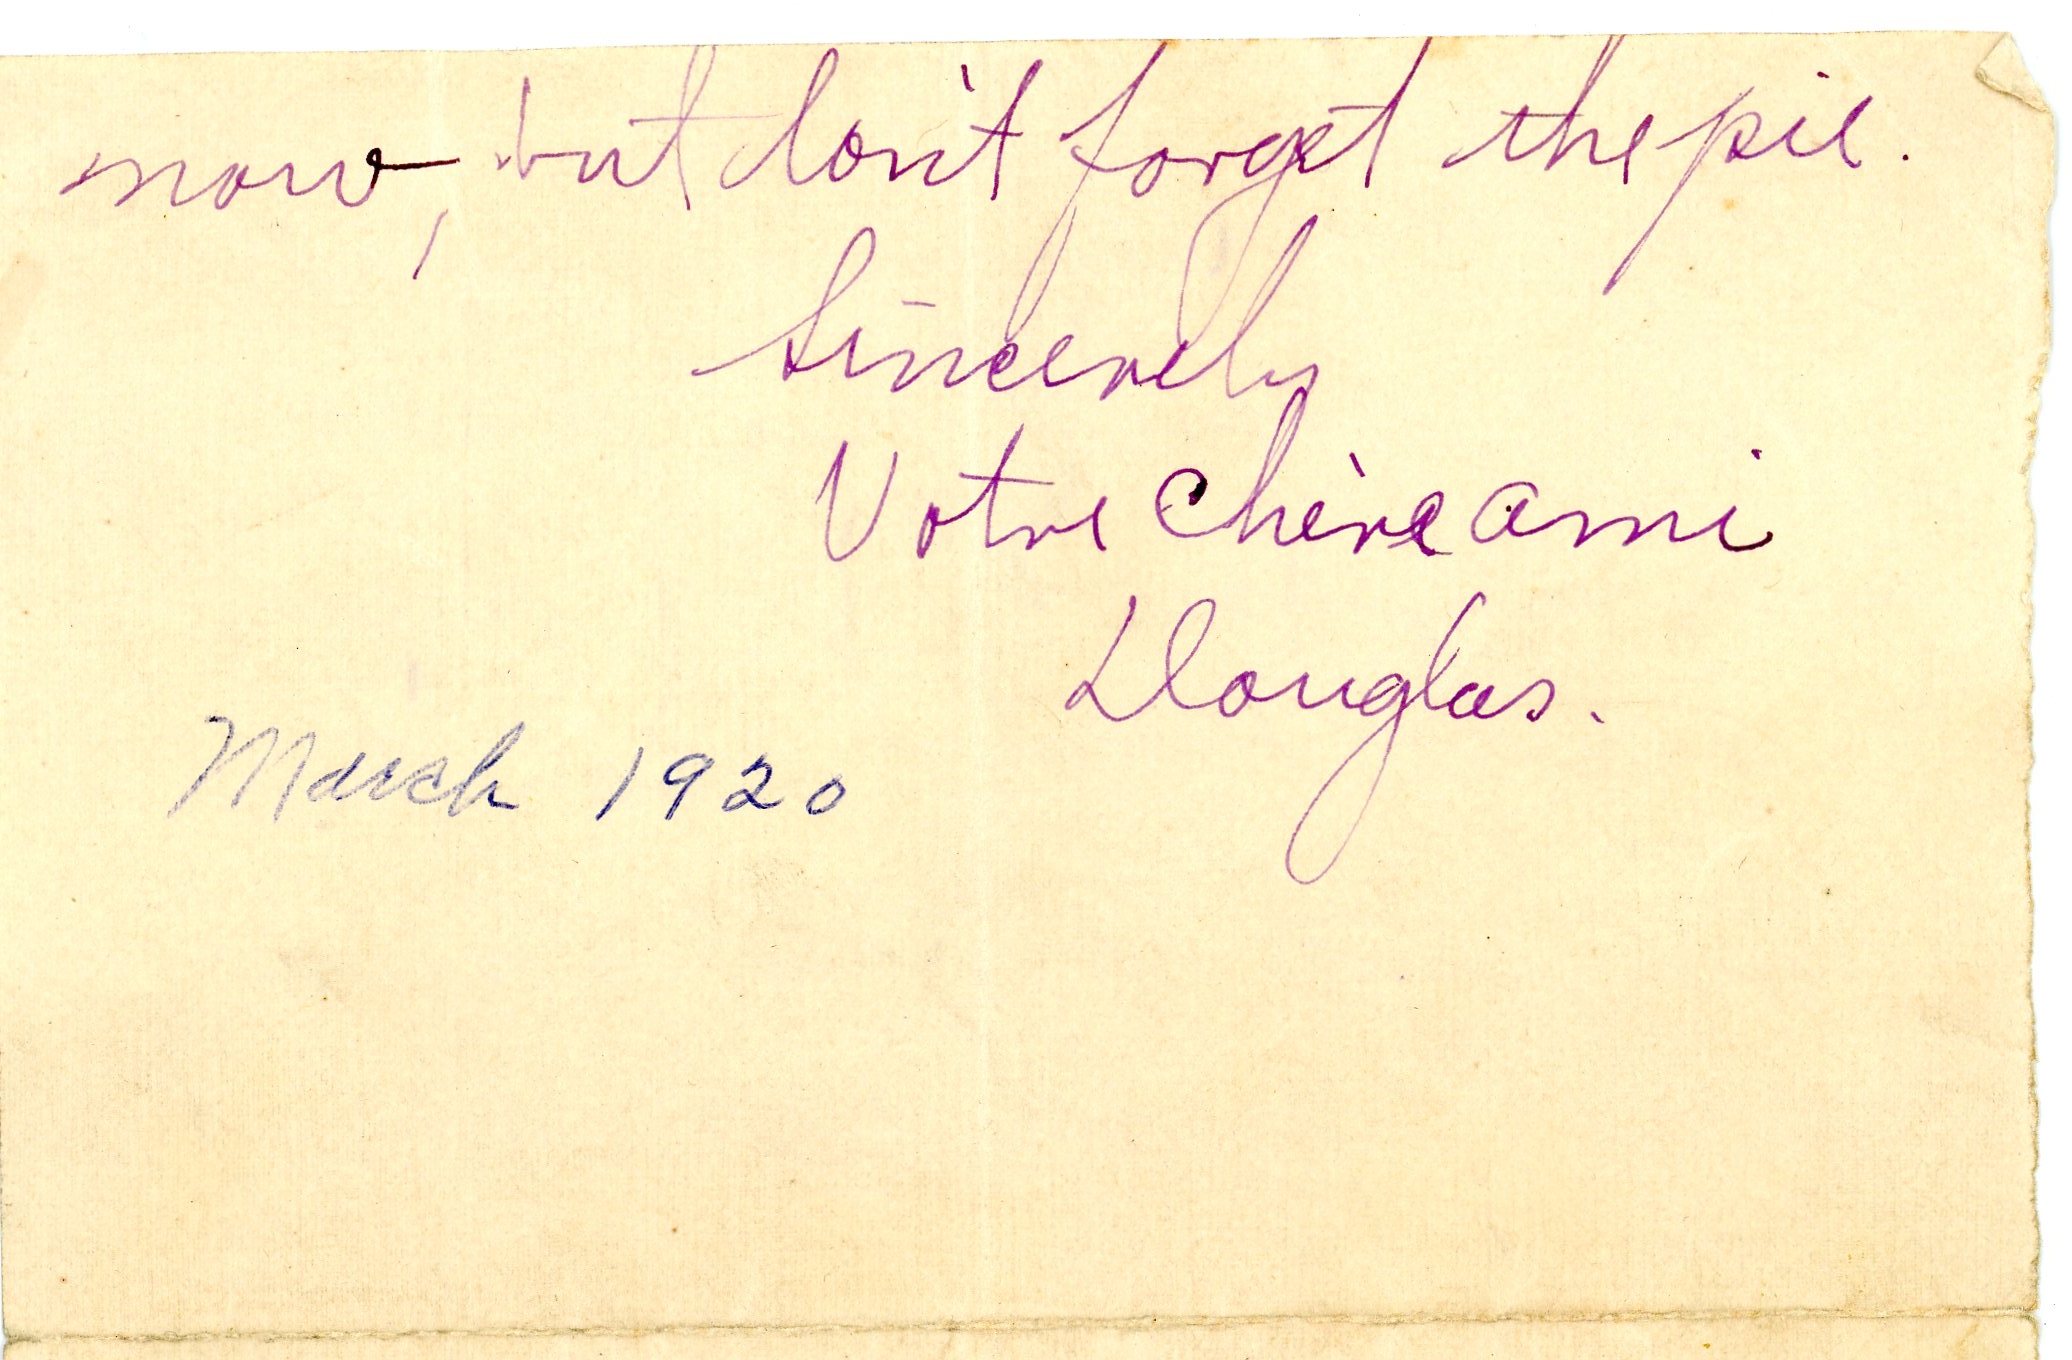 now, but don't forget the pie.
Sincerely
Votre Chère ami
Douglas.
March 1920